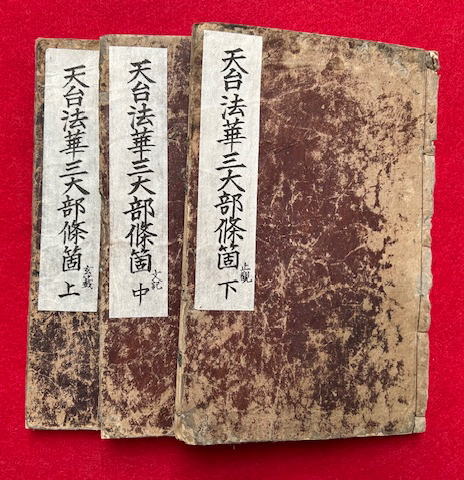 天台法華三大部條箇 止觀 下
天台法華三大部條箇 文記 中
天台法華三大部條箇 玄籖 上